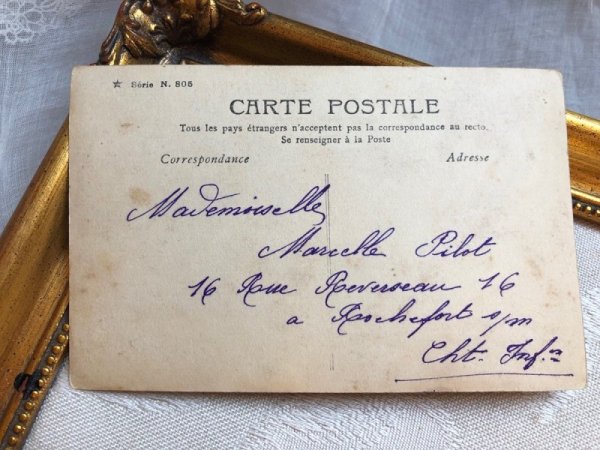 ★ Série N. 805
CARTE POSTALE
Tous les pays étrangers n'acceptent pas la correspondance au recto.
Se renseigner à la Poste
Correspondance Adresse
Mademoiselle
Marcelle Pilot
16 Rue Reverseau 16
a Rochefort s/m
Cht. Infre